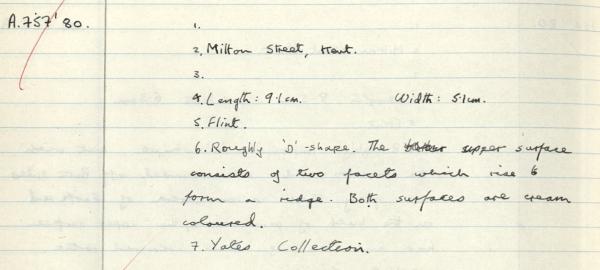 A.757'80.
1.
2. Milton Street, Kent.
3.
4. Length: 9.1cm. Width: 5.1cm.
5. Flint.
6. Roughly 'D'-shape. The upper surface
consists of two facets which rise to
form a ridge. Both surfaces are cream
coloured.
7. Yates Collection.